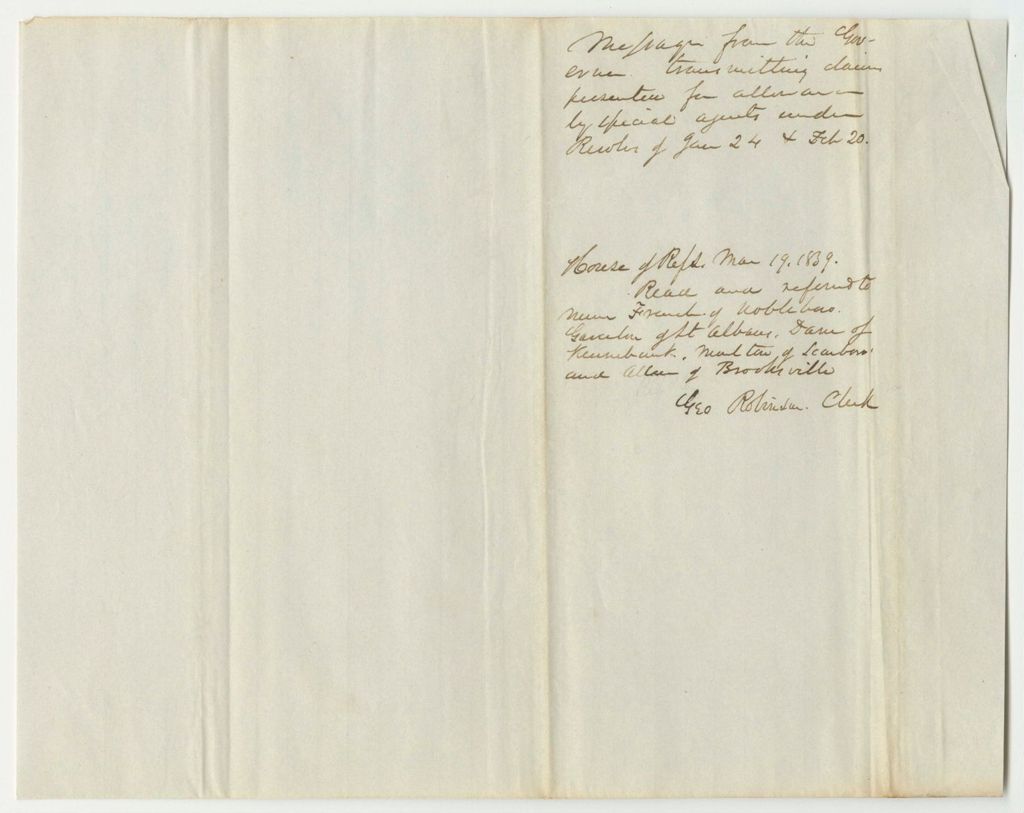 Message from the Gov-
ernor transmitting claims
presented for allowance
by special agents under
Resolves of Jan 24 & Feb 20.
House of Reps. Mar 19. 1839.
Read and referred to
Messrs French of Nobleboro.
Garcelon of St Albans, Dane of
Kennebunk, Moulton of Scarboro'
and Allen of Brooksville
Geo Robinson. Clerk